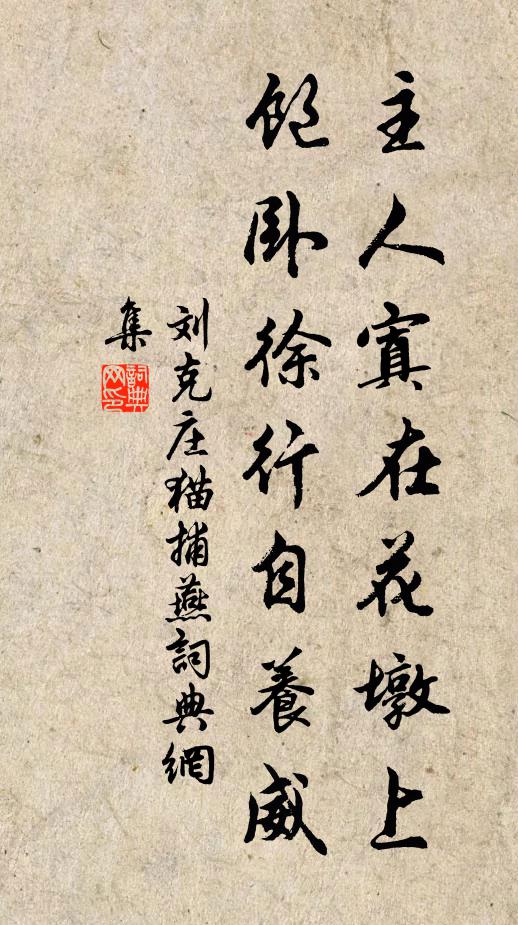 主人寘在花墩上
飽卧徐行自養威
刘克庄猫捕燕詞典網
集
詞典
网印